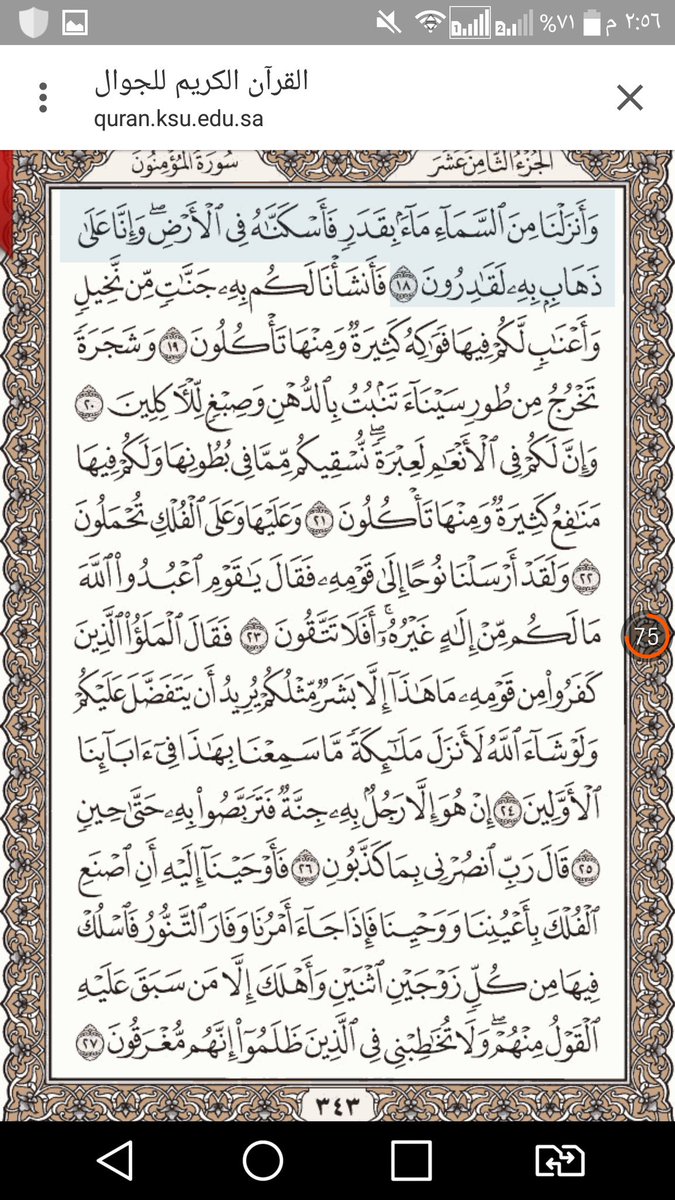 ٢:٥٦ م ٧١%
القرآن الكريم للجوال
quran.ksu.edu.sa
الجزء الثامن عشر سورة المؤمنون
وَأَنزَلْنَا مِنَ ٱلسَّمَآءِ مَآءًۢ بِقَدَرٍ فَأَسْكَنَّٰهُ فِى ٱلْأَرْضِۖ وَإِنَّا عَلَىٰ
ذَهَابٍۭ بِهِۦ لَقَٰدِرُونَ ١٨ فَأَنشَأْنَا لَكُم بِهِۦ جَنَّٰتٍ مِّن نَّخِيلٍ
وَأَعْنَٰبٍ لَّكُمْ فِيهَا فَوَٰكِهُ كَثِيرَةٌ وَمِنْهَا تَأْكُلُونَ ١٩ وَشَجَرَةً
تَخْرُجُ مِن طُورِ سَيْنَآءَ تَنۢبُتُ بِٱلدُّهْنِ وَصِبْغٍ لِّلْءَاكِلِينَ ٢٠
وَإِنَّ لَكُمْ فِى ٱلْأَنْعَٰمِ لَعِبْرَةًۖ نُّسْقِيكُم مِّمَّا فِى بُطُونِهَا وَلَكُمْ فِيهَا
مَنَٰفِعُ كَثِيرَةٌ وَمِنْهَا تَأْكُلُونَ ٢١ وَعَلَيْهَا وَعَلَى ٱلْفُلْكِ تُحْمَلُونَ
٢٢ وَلَقَدْ أَرْسَلْنَا نُوحًا إِلَىٰ قَوْمِهِۦ فَقَالَ يَٰقَوْمِ ٱعْبُدُوا۟ ٱللَّهَ
مَا لَكُم مِّنْ إِلَٰهٍ غَيْرُهُۥٓۚ أَفَلَا تَتَّقُونَ ٢٣ فَقَالَ ٱلْمَلَؤُا۟ ٱلَّذِينَ
75
كَفَرُوا۟ مِن قَوْمِهِۦ مَا هَٰذَآ إِلَّا بَشَرٌ مِّثْلُكُمْ يُرِيدُ أَن يَتَفَضَّلَ عَلَيْكُمْ
وَلَوْ شَآءَ ٱللَّهُ لَأَنزَلَ مَلَٰٓئِكَةً مَّا سَمِعْنَا بِهَٰذَا فِىٓ ءَابَآئِنَا
ٱلْأَوَّلِينَ ٢٤ إِنْ هُوَ إِلَّا رَجُلٌۢ بِهِۦ جِنَّةٌ فَتَرَبَّصُوا۟ بِهِۦ حَتَّىٰ حِينٍ
٢٥ قَالَ رَبِّ ٱنصُرْنِى بِمَا كَذَّبُونِ ٢٦ فَأَوْحَيْنَآ إِلَيْهِ أَنِ ٱصْنَعِ
ٱلْفُلْكَ بِأَعْيُنِنَا وَوَحْيِنَا فَإِذَا جَآءَ أَمْرُنَا وَفَارَ ٱلتَّنُّورُۙ فَٱسْلُكْ
فِيهَا مِن كُلٍّ زَوْجَيْنِ ٱثْنَيْنِ وَأَهْلَكَ إِلَّا مَن سَبَقَ عَلَيْهِ
ٱلْقَوْلُ مِنْهُمْۖ وَلَا تُخَٰطِبْنِى فِى ٱلَّذِينَ ظَلَمُوٓا۟ إِنَّهُم مُّغْرَقُونَ ٢٧
٣٤٣